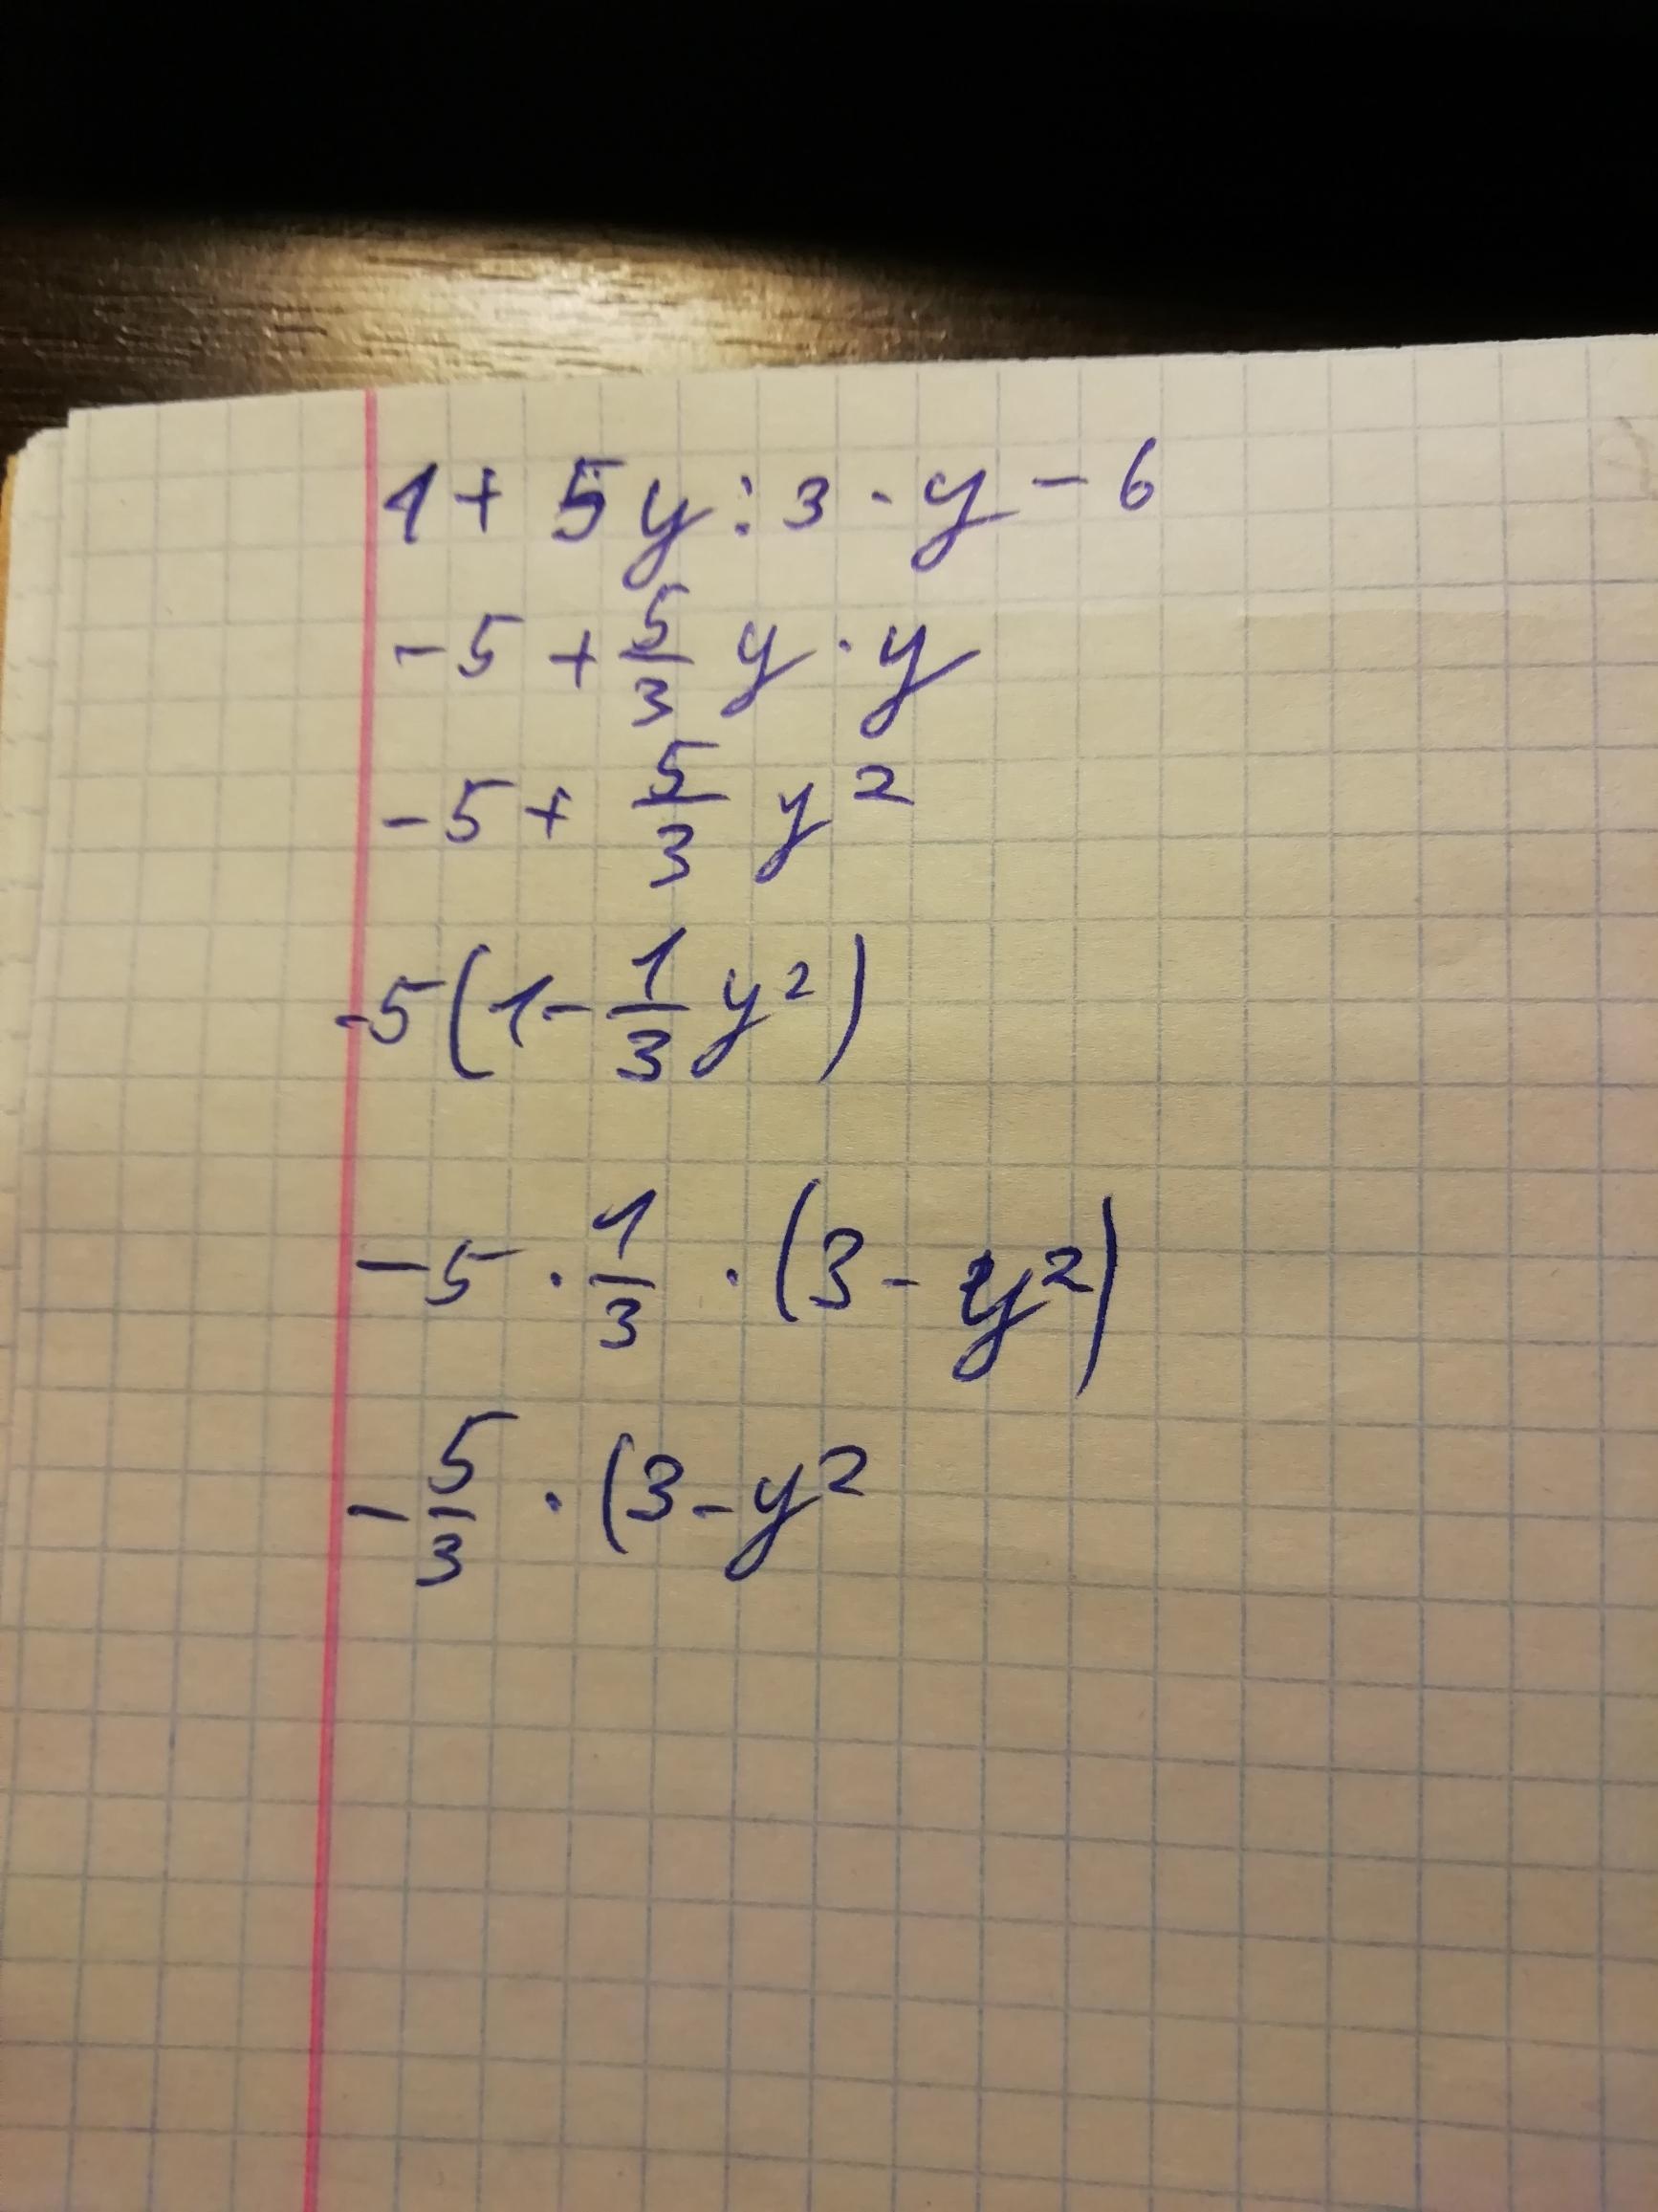 1 + 5y : 3 · y - 6
-5 + 5/3 y · y
-5 + 5/3 y²
-5(1 - 1/3 y²)
-5 · 1/3 · (3 - y²)
-5/3 · (3 - y²